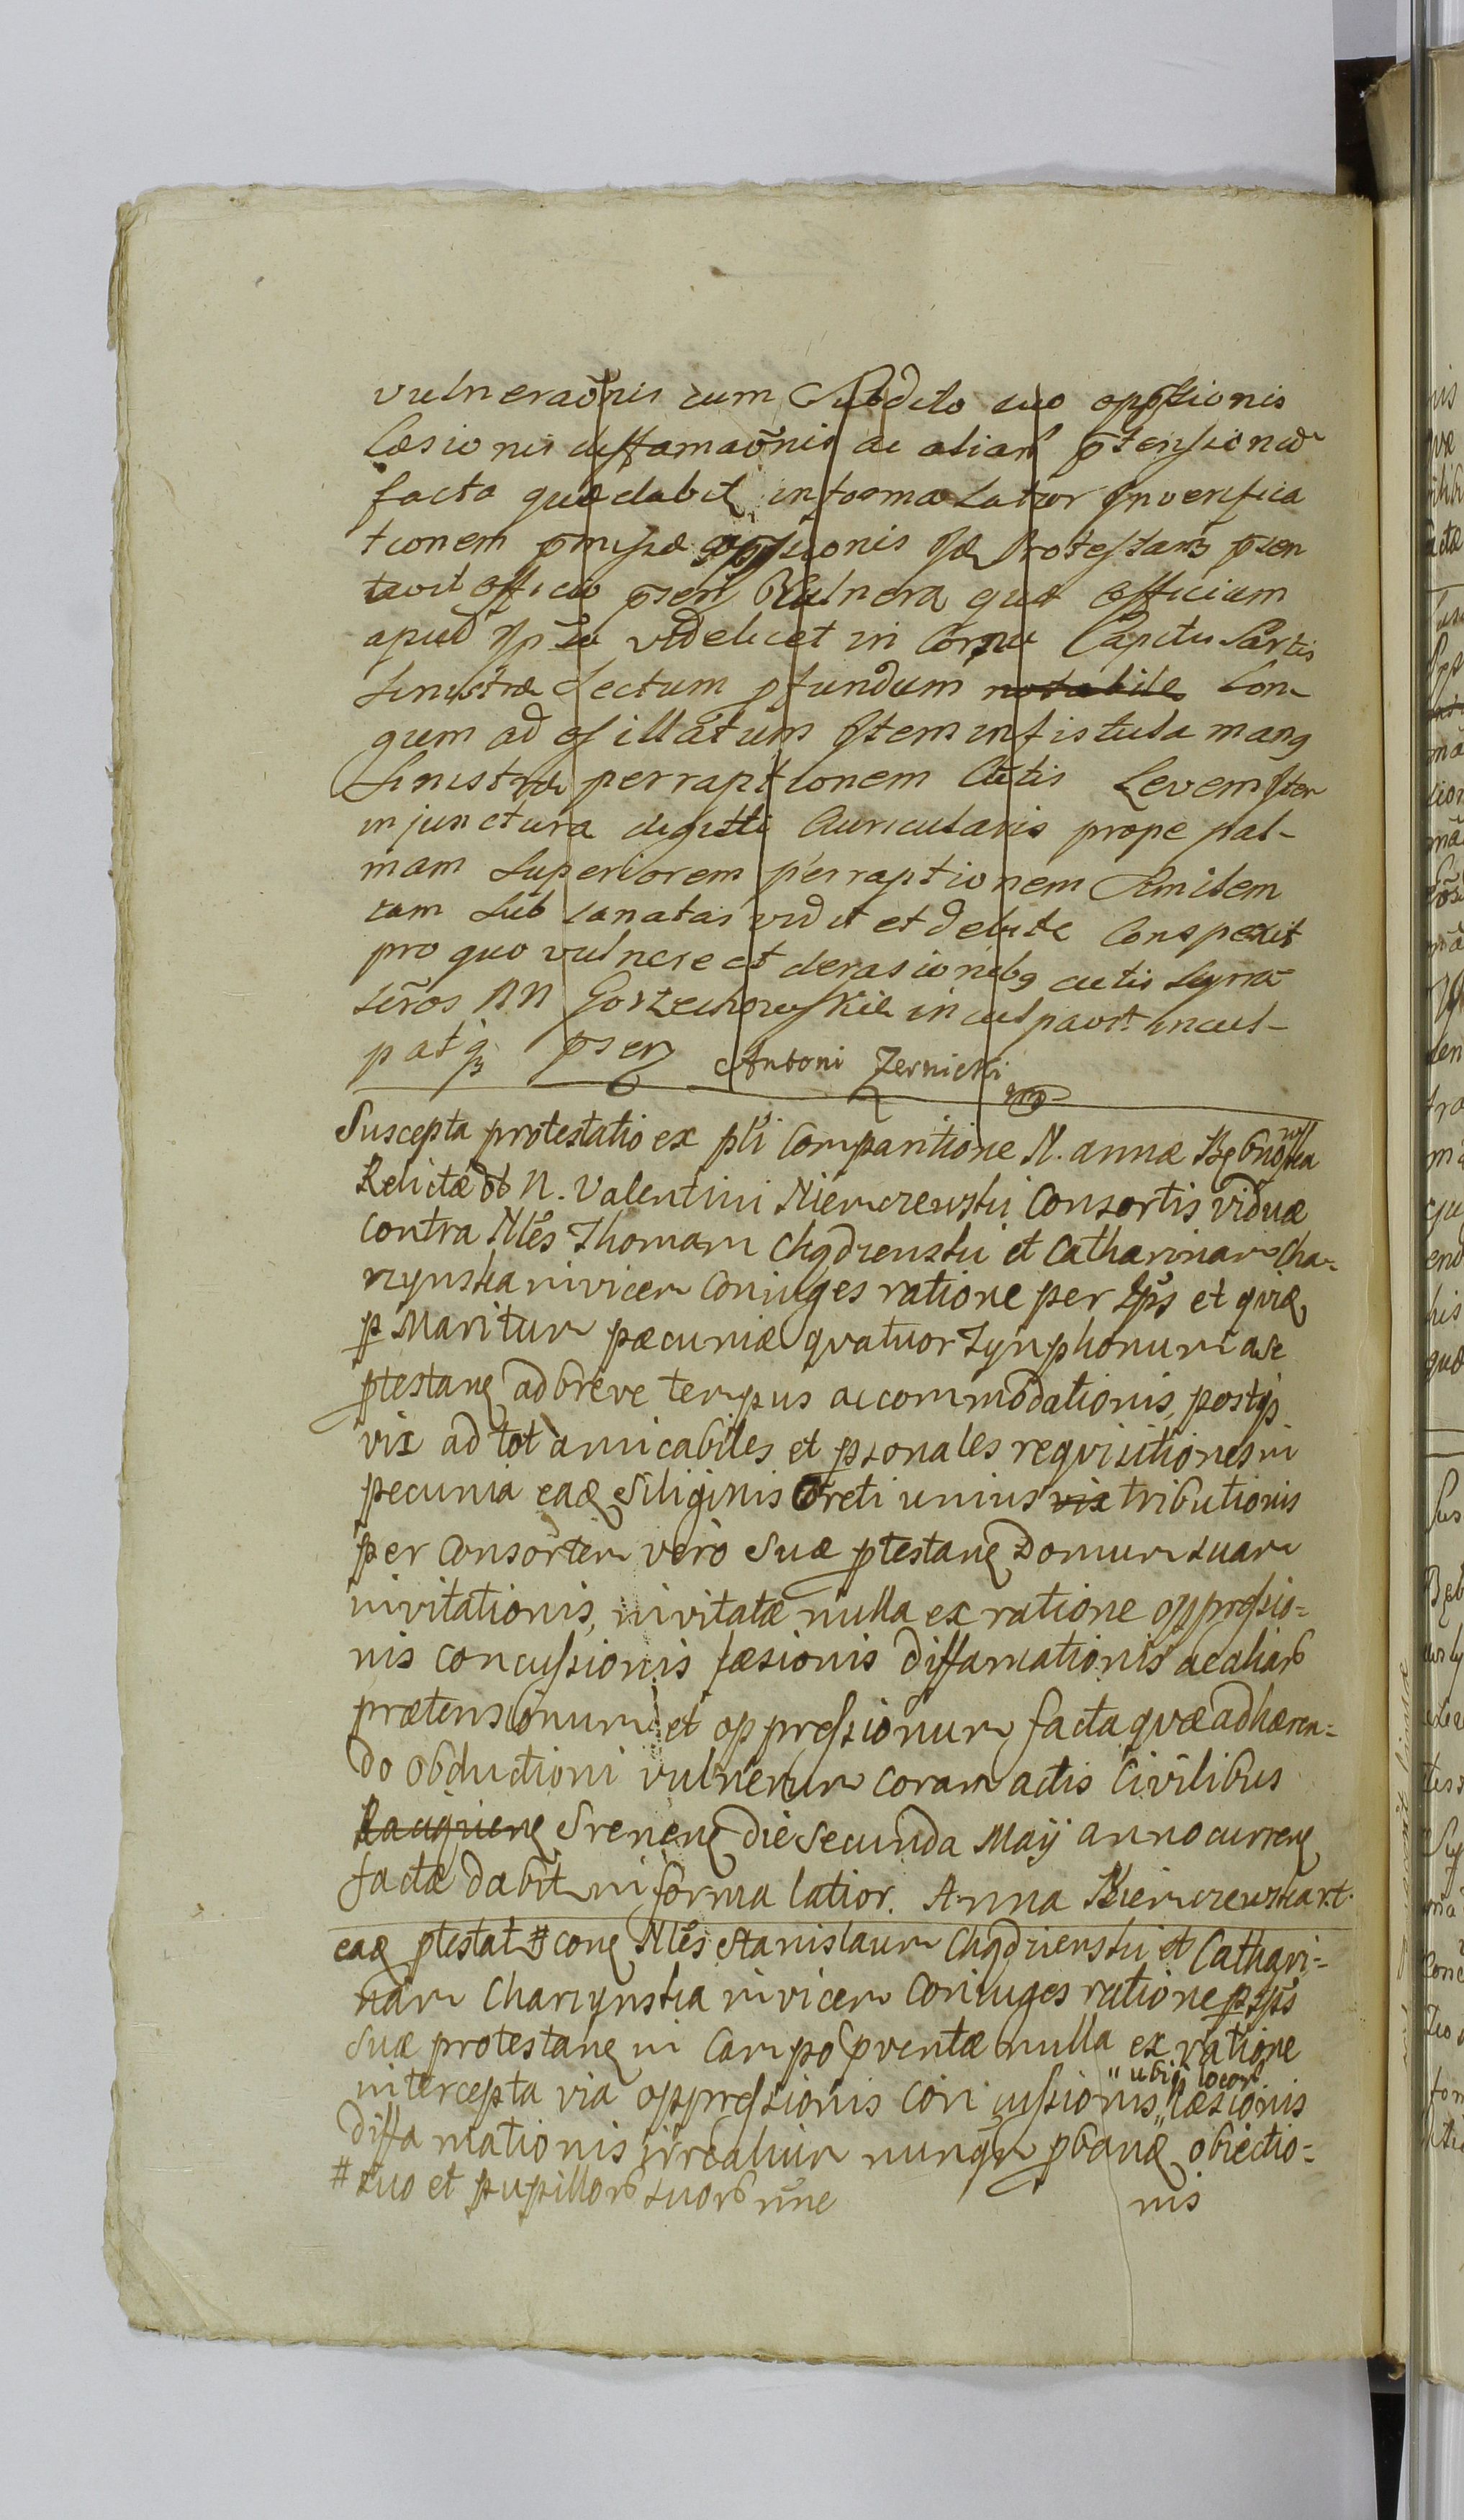 vulneraõnis cum Subdito suo oppssionis
læsionis diffamaõnis ac aliarũ ptensionũ
facta quæ dabit in forma latior In verifica
tionem pmissæ oppssionis Protestans psen
tavit officio psenti Vulnera quæ officium
apud Ipsũ videlicet in Cornu Capitis Partis
Sinistræ Sectum pfundum notabile lon-
gum ad os illatum Item in fistula manq
Sinistræ perraptionem Cũtis Levem Item
in junctura digiti Auricularis prope pal-
mam Superiorem perraptionem Similem
iam Sub sanatas vidit et debite Conspexit
pro quo vulnere et derasionibq cutis supra-
scr̃os NN Gorzechowskie in culpavit incul-
patq psen Antoni Zernicki
mp
Suscepta protestatio ex pl̃i Comparitione N. Annæ Bębnowska
Relictæ ol N. Valentini Niemczewski Consortis viduæ
contra Nl̃es Thomam Chądzenski et Catharinam Cha-
rzynska invicem Coniuges ratione per Ips̃ et quid
p Maritum pæcuniæ quatuor Tynphonum a se
ptestanę ad breve tempus accommodationis, postq
vix ad tot amicabiles et psonales requisitiones in
pecunia eaq Siliginis Coreti unius vix tributionis
per Consortem vero Suæ ptestanę Domum suam
invitationis, invitatæ nulla ex ratione oppressio=
nis concussionis læsionis diffamationis ac aliarũ
prætensionum et oppressionum facta quæ adhæren=
do obductioni vulnerum coram actis Civilibus
Raciązienę Srenenę die Secunda Maij anno currenę
factæ dabit in forma latior. Anna Niemczewska x.t.
eaq ptestat # conę Nl̃es Stanislaum Chądzienski et Cathari=
nam Charzynska invicem Coniuges ratione p Ips̃
Suæ protestanę in Campo pventæ nulla ex ratione
intercepta via oppressionis con cussionis " læsionis
" ubiq locorũ
diffamationis irrealium nunqm pbanæ obiectio=
# suo et pupillorũ suorũ nñe nis